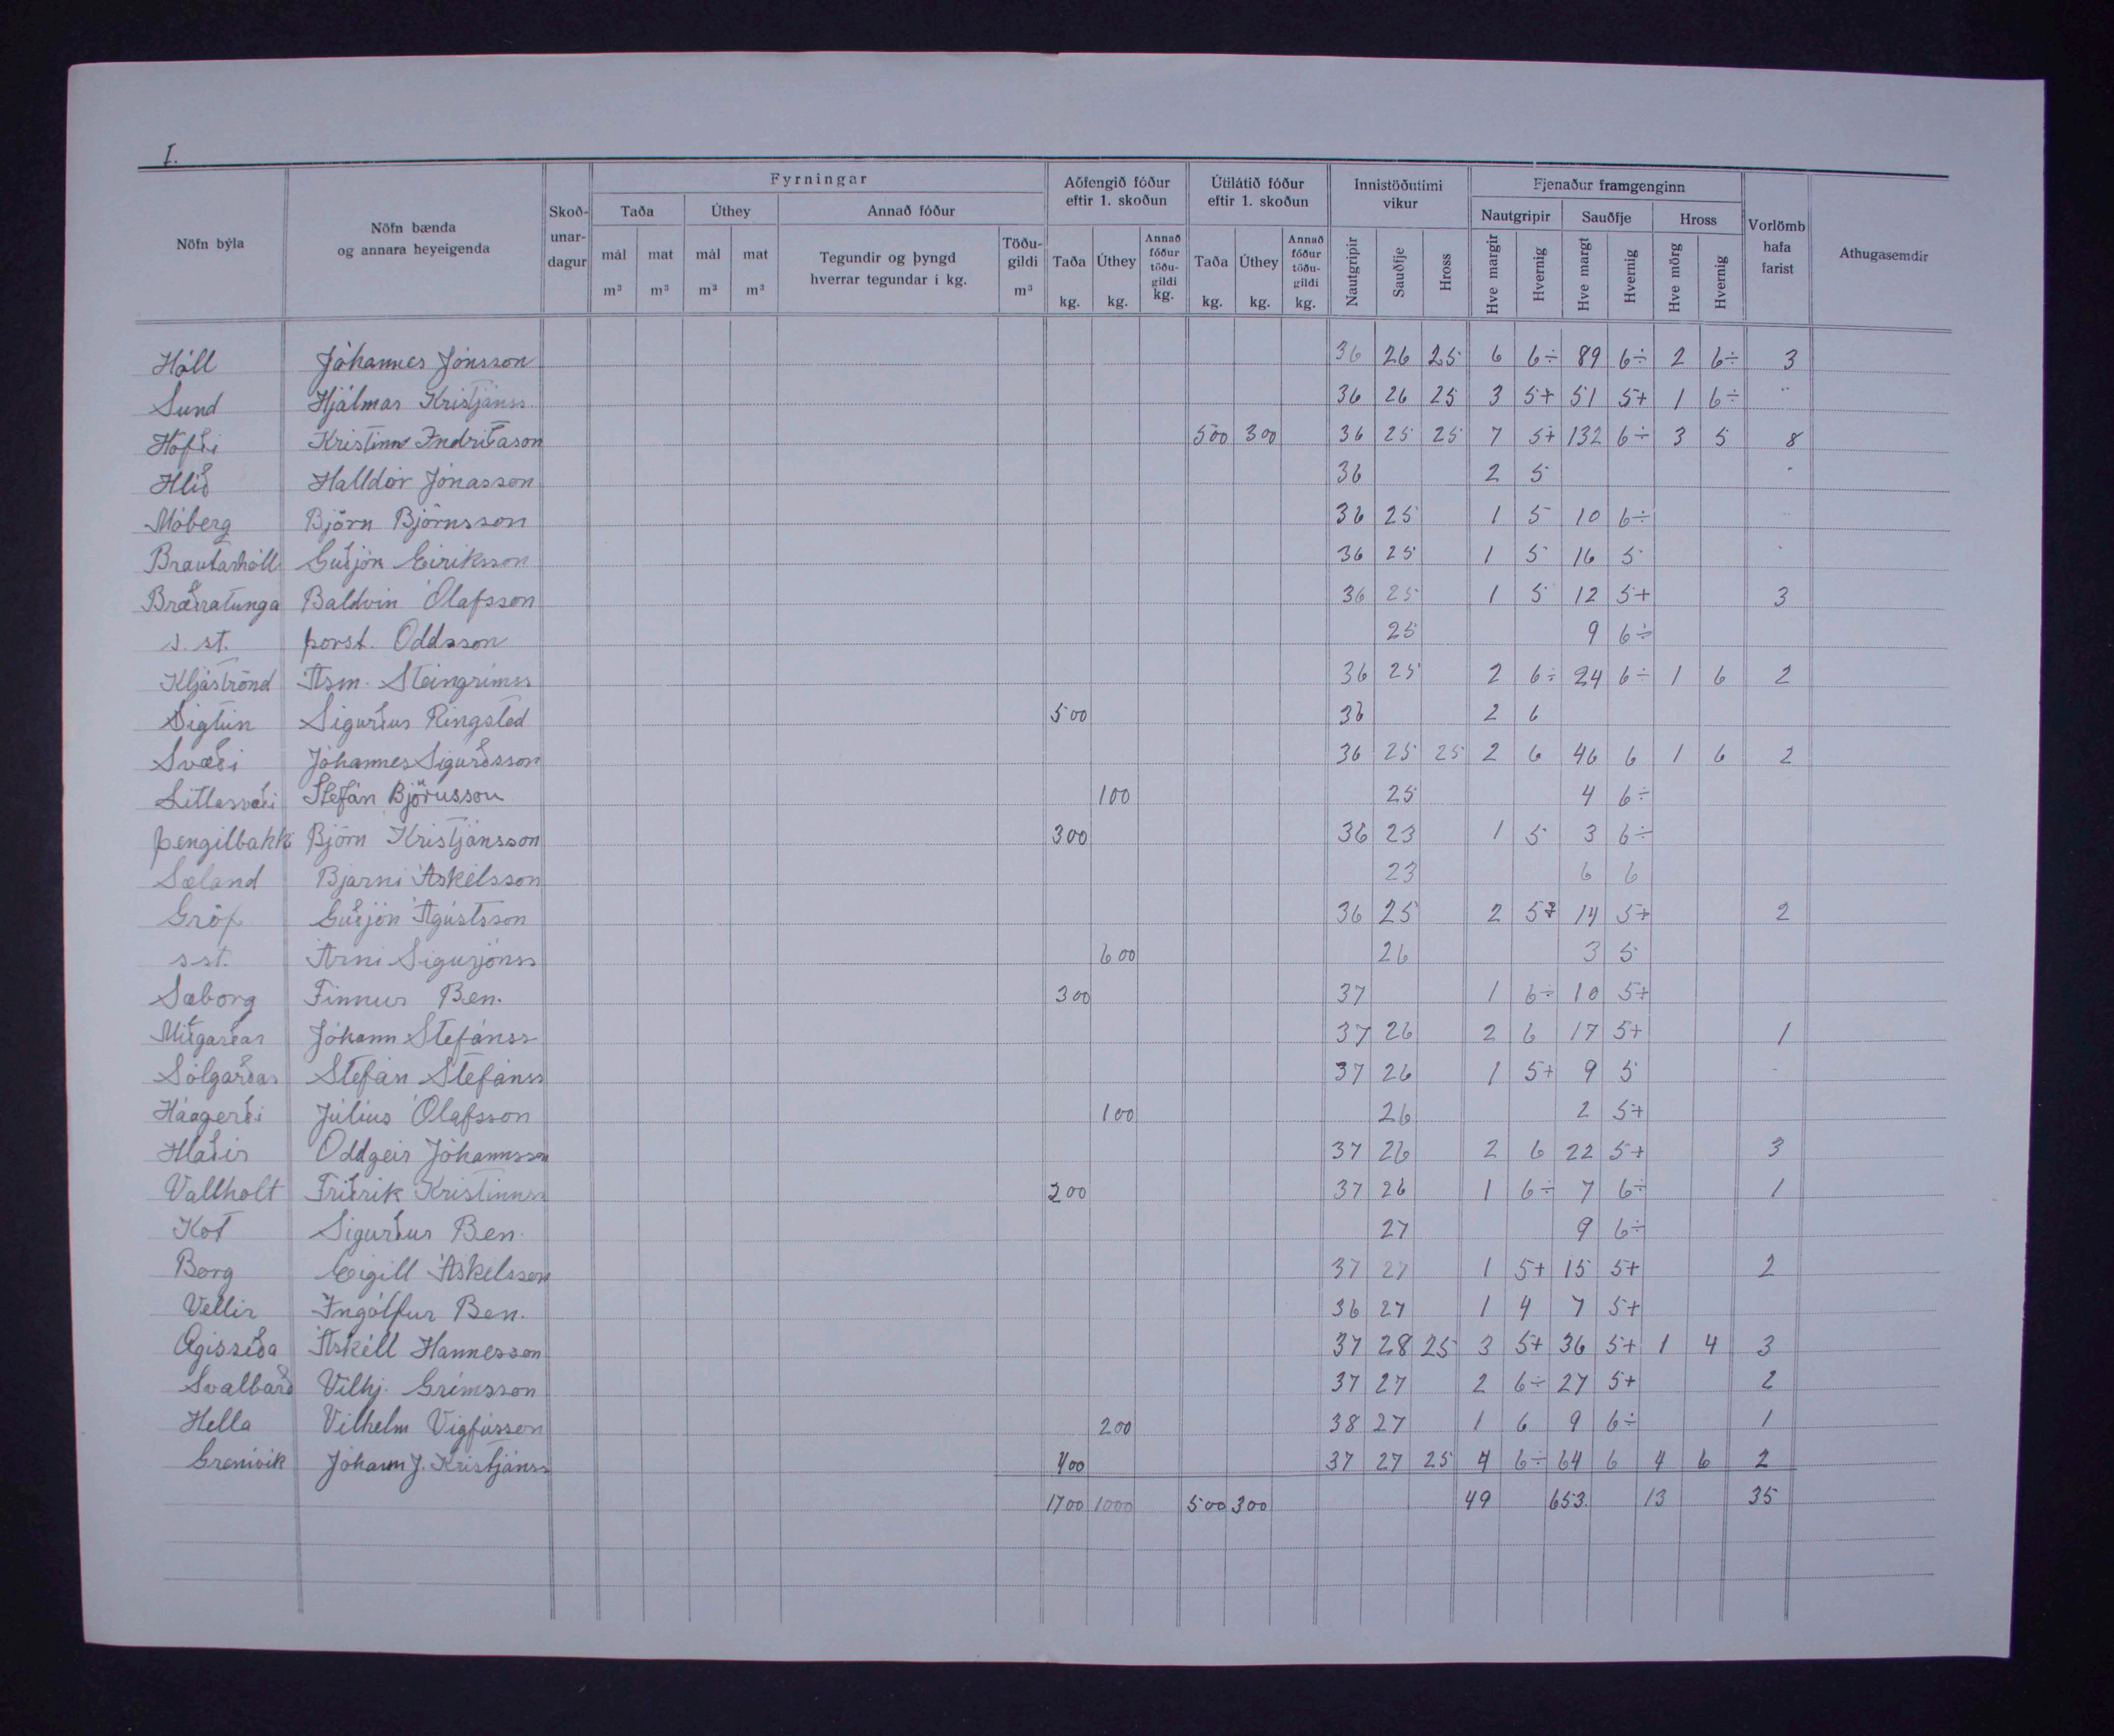 I.
Nöfn býla
Nöfn bænda og annara heyeigenda
Skoð-unar-dagur
Fyrningar
Taða
mál m³
mat m³
Úthey
mál m³
mat m³
Annað fóður
Tegundir og þyngd hverrar tegundar í kg.
Töðu-gildi m³
Aðfengið fóður eftir 1. skoðun
Taða kg.
Úthey kg.
Annað fóður töðu-gildi kg.
Útilátið fóður eftir 1. skoðun
Taða kg.
Úthey kg.
Annað fóður töðu-gildi kg.
Innistöðutimi vikur
Nautgripir
Sauðfje
Hross
Fjenaður framgenginn
Nautgripir
Hve margir
Hvernig
Sauðfje
Hve margt
Hvernig
Hross
Hve mörg
Hvernig
Vorlömb hafa farist
Athugasemdir
Hóll Jóhannes Jónsson 36 26 25 6 6÷ 89 6÷ 2 6÷ 3
Sund Hjálmar Kristjánss 36 26 25 3 5+ 51 5+ 1 6÷ "
Höfði Kristinn Indriðason 500 300 36 25 25 7 5+ 132 6÷ 3 5 8
Hlíð Halldór Jónasson 36 2 5 "
Móberg Björn Björnsson 36 25 1 5 10 6÷
Brautarhóll Guðjón Eiríksson 36 25 1 5 16 5
Bræðratunga Baldvin Ólafsson 36 25 1 5 12 5+ 3
s. st. Þorst. Oddsson 25 9 6÷
Kljáströnd Ásm. Steingrímss 36 25 2 6÷ 24 6÷ 1 6 2
Sigtún Sigurður Ringsted 500 36 2 6
Svæði Jóhannes Sigurðsson 36 25 25 2 6 46 6 1 6 2
Litlasvæði Stefán Björnsson 100 25 4 6÷
Þengilbakki Björn Kristjánsson 300 36 23 1 5 3 6÷
Sæland Bjarni Áskelsson 23 6 6
Gröf Guðjón Ágústsson 36 25 2 5+ 14 5+ 2
s.st. Árni Sigurjónss 600 26 3 5
Sæborg Finnur Ben. 300 37 1 6÷ 10 5+
Miðgarðar Jóhann Stefánss 37 26 2 6 17 5+ 1
Sólgarðar Stefán Stefánss 37 26 1 5+ 9 5
Háagerði Júlíus Ólafsson 100 26 2 5+
Hlaðir Oddgeir Jóhannsson 37 26 2 6 22 5+ 3
Vallholt Friðrik Kristinnss 200 37 26 1 6÷ 7 6÷ 1
Kot Sigurður Ben. 27 9 6÷
Borg Eigill Áskelsson 37 27 1 5+ 15 5+ 2
Vellir Ingólfur Ben. 36 27 1 4 7 5+
Ægissíða Áskell Hannesson 37 28 25 3 5+ 36 5+ 1 4 3
Svalbarð Vilhj. Grímsson 37 27 2 6÷ 27 5+ 2
Hella Vilhelm Vigfússon 200 38 27 1 6 9 6÷ 1
Grenivík Jóhann J. Kristjánss 400 37 27 25 4 6÷ 64 6 4 6 2
1700 1000 500 300 49 653. 13 35